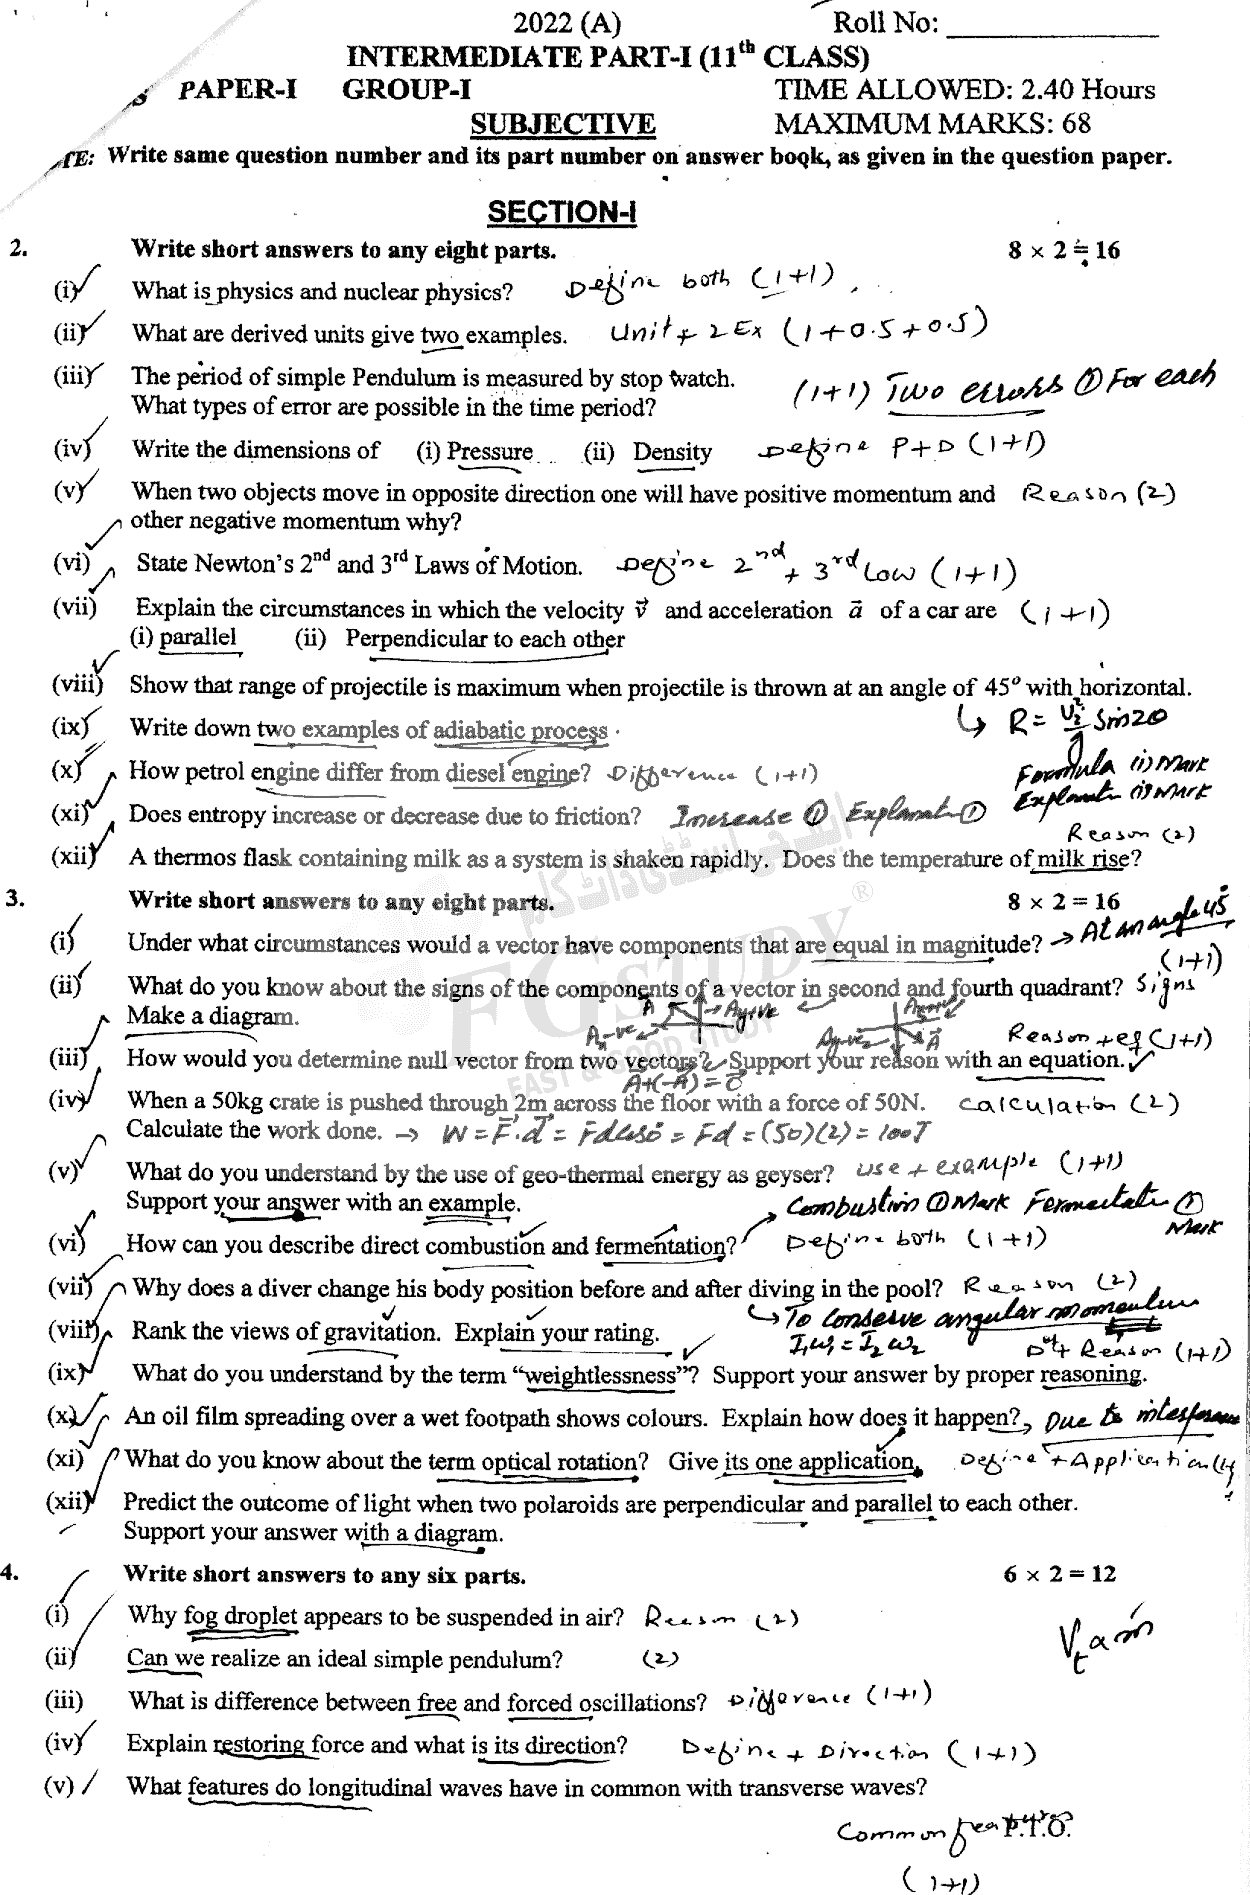 2022 (A) Roll No:
INTERMEDIATE PART-I (11th CLASS)
PAPER-I GROUP-I TIME ALLOWED: 2.40 Hours
SUBJECTIVE MAXIMUM MARKS: 68
TE: Write same question number and its part number on answer book, as given in the question paper.
SECTION-I
2. Write short answers to any eight parts. 8 × 2 = 16
(i) What is physics and nuclear physics? Define both (1+1)
(ii) What are derived units give two examples. Unit + 2 Ex (1+0.5+0.5)
(iii) The period of simple Pendulum is measured by stop watch.
What types of error are possible in the time period? (1+1) Two errors ① For each
(iv) Write the dimensions of (i) Pressure (ii) Density Define P+D (1+1)
(v) When two objects move in opposite direction one will have positive momentum and Reason (2)
other negative momentum why?
(vi) State Newton's 2nd and 3rd Laws of Motion. Define 2nd + 3rd Low (1+1)
(vii) Explain the circumstances in which the velocity v⃗ and acceleration a⃗ of a car are (1+1)
(i) parallel (ii) Perpendicular to each other
(viii) Show that range of projectile is maximum when projectile is thrown at an angle of 45° with horizontal.
(ix) Write down two examples of adiabatic process. ↳ R = Sin2θ
(x) How petrol engine differ from diesel engine? Difference (1+1) Formula (1) Mark
Explanat (1) Mark
(xi) Does entropy increase or decrease due to friction? Increase ① Explanat ①
Reason (2)
(xii) A thermos flask containing milk as a system is shaken rapidly. Does the temperature of milk rise?
ایف جی سٹڈی ڈاٹ کام
FG STUDY ®
EAST & GOOD STUDY
3. Write short answers to any eight parts. 8 × 2 = 16
(i) Under what circumstances would a vector have components that are equal in magnitude? → At an angle 45
(1+1)
(ii) What do you know about the signs of the components of a vector in second and fourth quadrant? Signs
Make a diagram. A Ay+ve Ax-ve Ay-ve A⃗
Reason + eq (1+1)
(iii) How would you determine null vector from two vectors? Support your reason with an equation.
A+(-A) = O⃗
(iv) When a 50kg crate is pushed through 2m across the floor with a force of 50N. Calculation (2)
Calculate the work done. → W = F⃗.d⃗ = Fdcos0 = Fd = (50)(2) = 100J
(v) What do you understand by the use of geo-thermal energy as geyser? use + example (1+1)
Support your answer with an example. Combustion ① Mark Fermentati ① Mark
(vi) How can you describe direct combustion and fermentation? Define both (1+1)
(vii) Why does a diver change his body position before and after diving in the pool? Reason (2)
↳ To conserve angular momentum
(viii) Rank the views of gravitation. Explain your rating. I₁ω₁ = I₂ω₂
Reason (1+1)
(ix) What do you understand by the term "weightlessness"? Support your answer by proper reasoning.
(x) An oil film spreading over a wet footpath shows colours. Explain how does it happen? Due to interference
(xi) What do you know about the term optical rotation? Give its one application. Define + Application
(xii) Predict the outcome of light when two polaroids are perpendicular and parallel to each other.
Support your answer with a diagram.
4. Write short answers to any six parts. 6 × 2 = 12
(i) Why fog droplet appears to be suspended in air? Reason (2)
Vt α m
(ii) Can we realize an ideal simple pendulum? (2)
(iii) What is difference between free and forced oscillations? Difference (1+1)
(iv) Explain restoring force and what is its direction? Define + Direction (1+1)
(v) What features do longitudinal waves have in common with transverse waves?
Common features P.T.O.
(1+1)